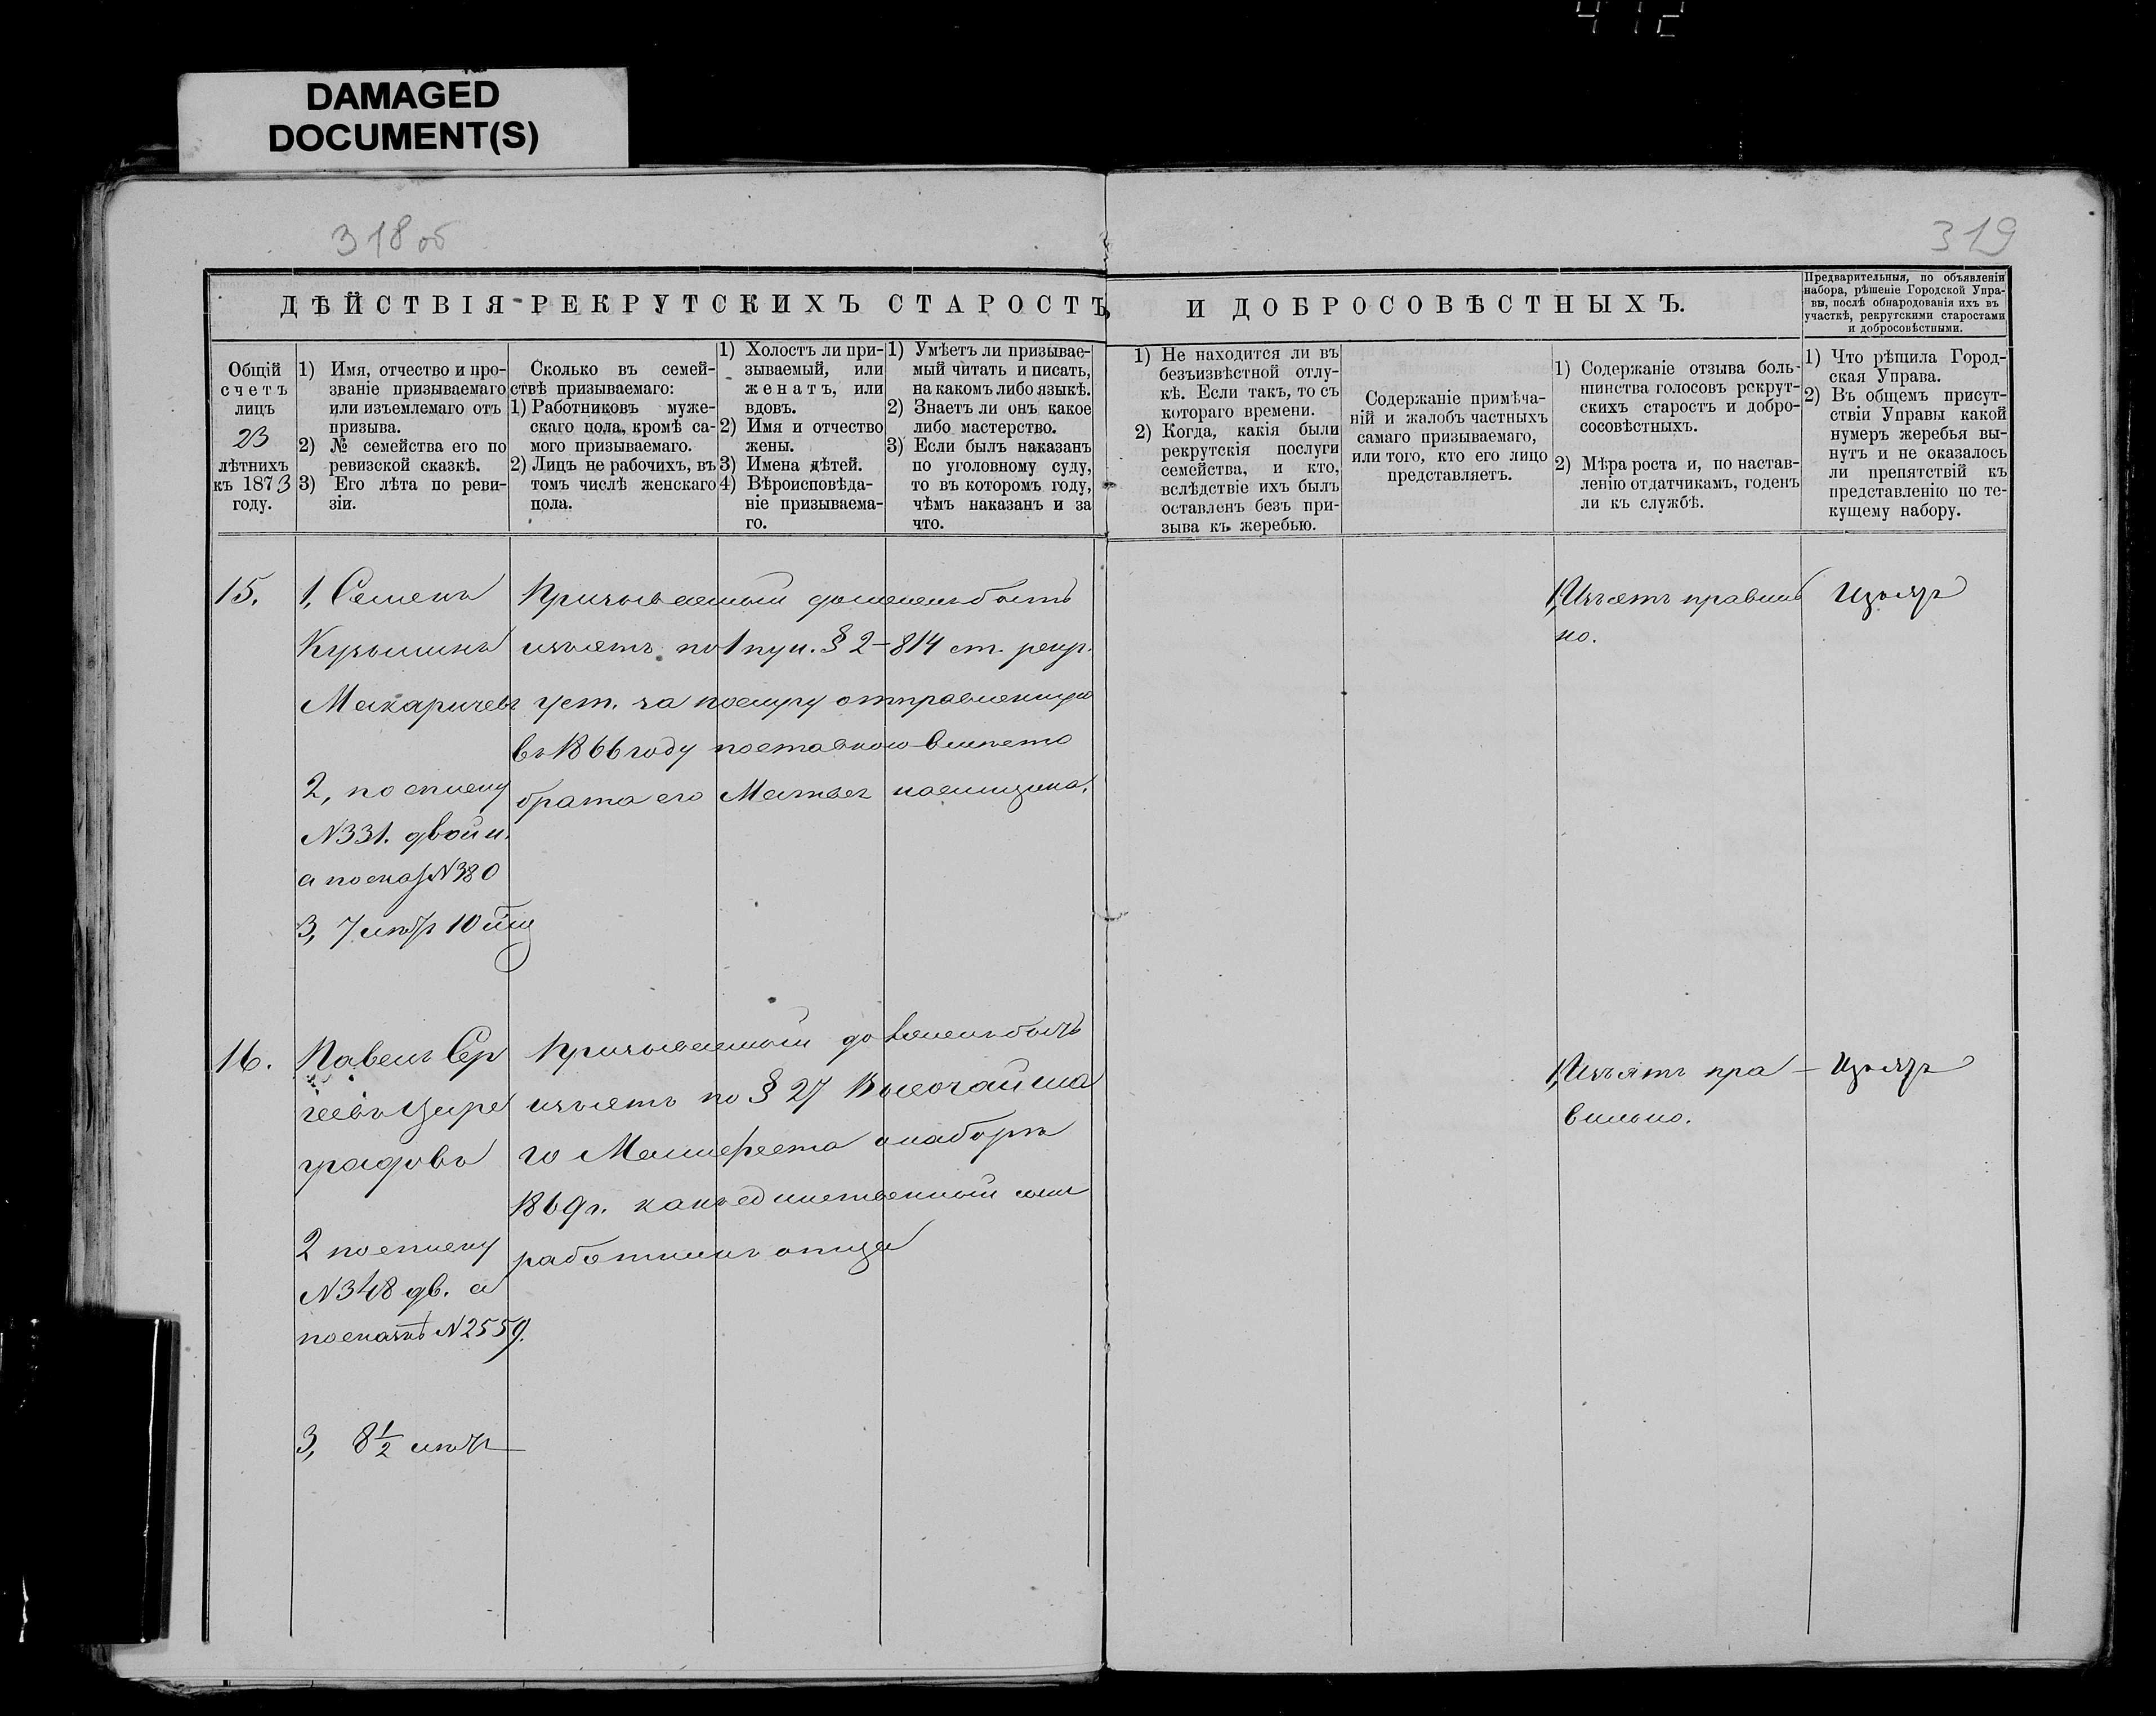 412
DAMAGED
DOCUMENT(S)
318 об
319
ДѢЙСТВІЯ РЕКРУТСКИХЪ СТАРОСТЪ
И ДОБРОСОВѢСТНЫХЪ.
Предварительныя, по объявленіи
набора, рѣшеніе Городской Упра-
вы, послѣ обнародованія ихъ въ
участкѣ, рекрутскими старостами
и добросовѣстными.
Общій
счетъ
лицъ
23
лѣтнихъ
къ 1873
году.
1) Имя, отчество и про-
званіе призываемаго
или изъемлемаго отъ
призыва.
2) № семейства его по
ревизской сказкѣ.
3) Его лѣта по реви-
зіи.
Сколько въ семей-
ствѣ призываемаго:
1) Работниковъ муже-
скаго пола, кромѣ са-
мого призываемаго.
2) Лицъ не рабочихъ, въ
томъ числѣ женскаго
пола.
1) Холостъ ли при-
зываемый, или
женатъ, или
вдовъ.
2) Имя и отчество
жены.
3) Имена дѣтей.
4) Вѣроисповѣда-
ніе призываема-
го.
1) Умѣетъ ли призывае-
мый читать и писать,
на какомъ либо языкѣ.
2) Знаетъ ли онъ какое
либо мастерство.
3) Если былъ наказанъ
по уголовному суду,
то въ которомъ году,
чѣмъ наказанъ и за
что.
1) Не находится ли въ
безъизвѣстной отлу-
кѣ. Если такъ, то съ
котораго времени.
2) Когда, какія были
рекрутскія послуги
семейства, и кто,
вслѣдствіе ихъ былъ
оставленъ безъ при-
зыва къ жеребью.
Содержаніе примѣча-
ній и жалобъ частныхъ
самаго призываемаго,
или того, кто его лицо
представляетъ.
1) Содержаніе отзыва боль-
шинства голосовъ рекрут-
скихъ старостъ и добро-
сосовѣстныхъ.
2) Мѣра роста и, по настав-
ленію отдатчикамъ, годенъ
ли къ службѣ.
1) Что рѣшила Город-
ская Управа.
2) Въ общемъ присут-
ствіи Управы какой
нумеръ жеребья вы-
нутъ и не оказалось
ли препятствій къ
представленію по те-
кущему набору.
15.
1, Семенъ
Кузьминъ
Макаричевъ
2, по списку
N 331. двойн.
а по сказ N 380
3, 7 лѣтъ 10 мѣц
Призываемый долженъ быть
изъятъ по 1 пун. § 2 – 814 ст. рекр.
уст. за послугу отправленную
въ 1866 году поставкою вмѣсто
брата его Матвея наемщика.
1, Изъятъ правиль
но.
Изъятъ
16.
Павелъ Сер
геевъ Цере
градовъ
2 по списку
N 348 дв. а
по сказкѣ N 2559.
3, 8½ лѣтъ
Призываемый долженъ быть
изъятъ по § 27 Высочайша
го Манифеста о наборѣ
1869 г. какъ единственный сынъ
работникъ отца
1, Изъятъ пра –
вильно.
Изъятъ